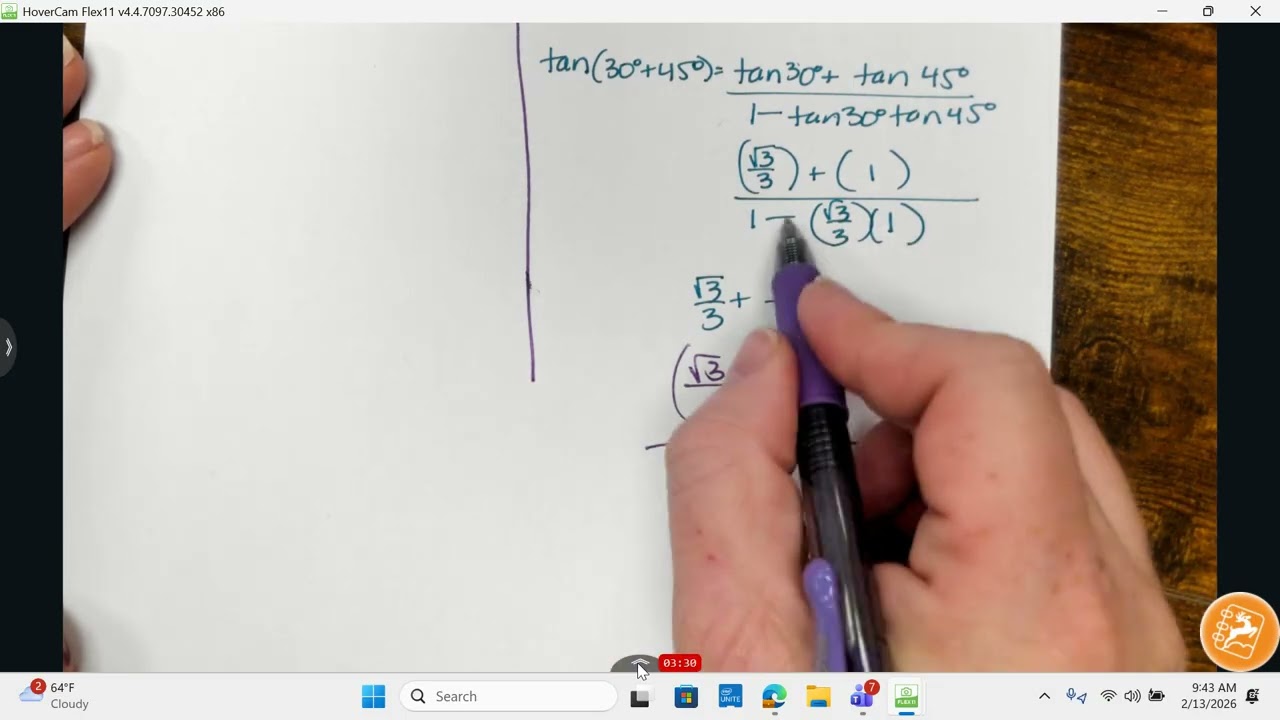 HoverCam Flex11 v4.4.7097.30452 x86
tan(30°+45°)= tan30°+ tan 45°
1- tan30°tan45°
(√3/3) + ( 1 )
1 - (√3/3)(1)
√3/3 +
(√3
03:30
2
64°F
Cloudy
Search
UNITE
7
FLEX 11
9:43 AM
2/13/2026